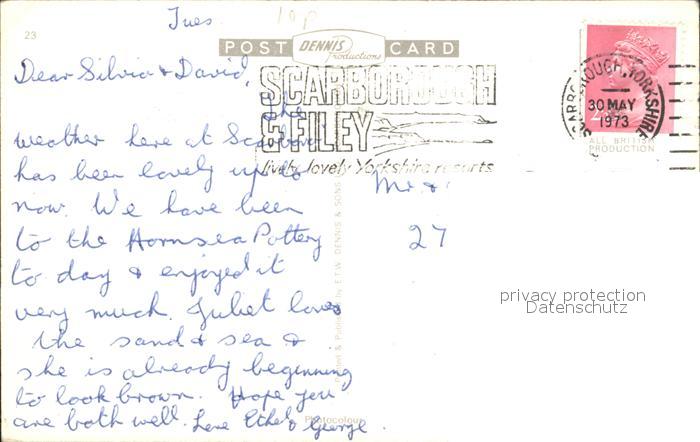 Tues
10p
23
POST DENNIS Productions CARD
Dear Silvia & David,
SCARBOROUGH
& FILEY
lively, lovely Yorkshire resorts
SCARBOROUGH, YORKSHIRE
30 MAY
1973
ALL BRITISH
PRODUCTION
The
weather here at Scarboro
has been lovely up to
now. We have been
to the Hornsea Pottery
to day & enjoyed it
very much. Juliet loves
the sand & sea &
she is already beginning
to look brown. Hope you
are both well. Love Ethel & George.
Mr &
27
privacy protection
Datenschutz
Printed & Published by E.T.W. DENNIS & SONS
Photocolour